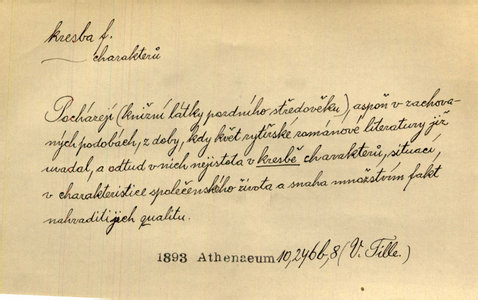 kresba f.
charakterů
Pocházejí (knižní látky pozdního středověku), aspoň v zachova-
ných podobách, z doby, kdy květ rytířské románové literatury již
uvadal, a odtud v nich nejistota v kresbě charakterů, situací,
v charakteristice společenského života a snaha množstvím fakt
nahraditi jich qualitu.
1893 Athenaeum 10, 246b, 8 (V. Tille.)